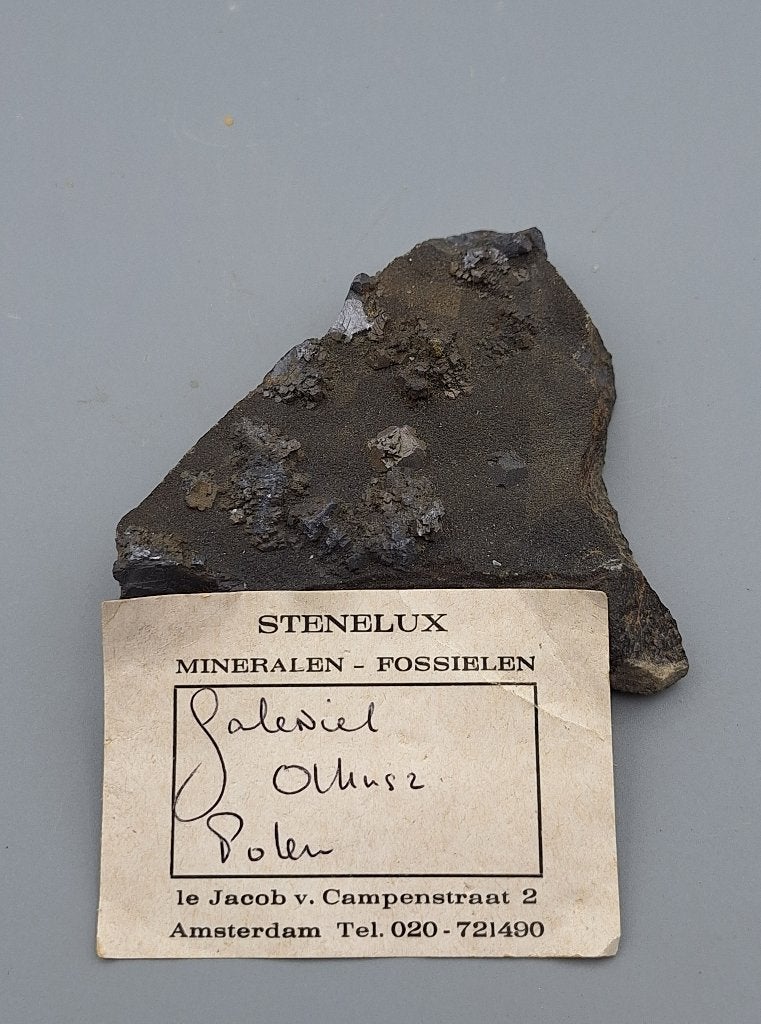 STENELUX
MINERALEN - FOSSIELEN
Galeniet
Olkusz
Polen
1e Jacob v. Campenstraat 2
Amsterdam Tel. 020 - 721490